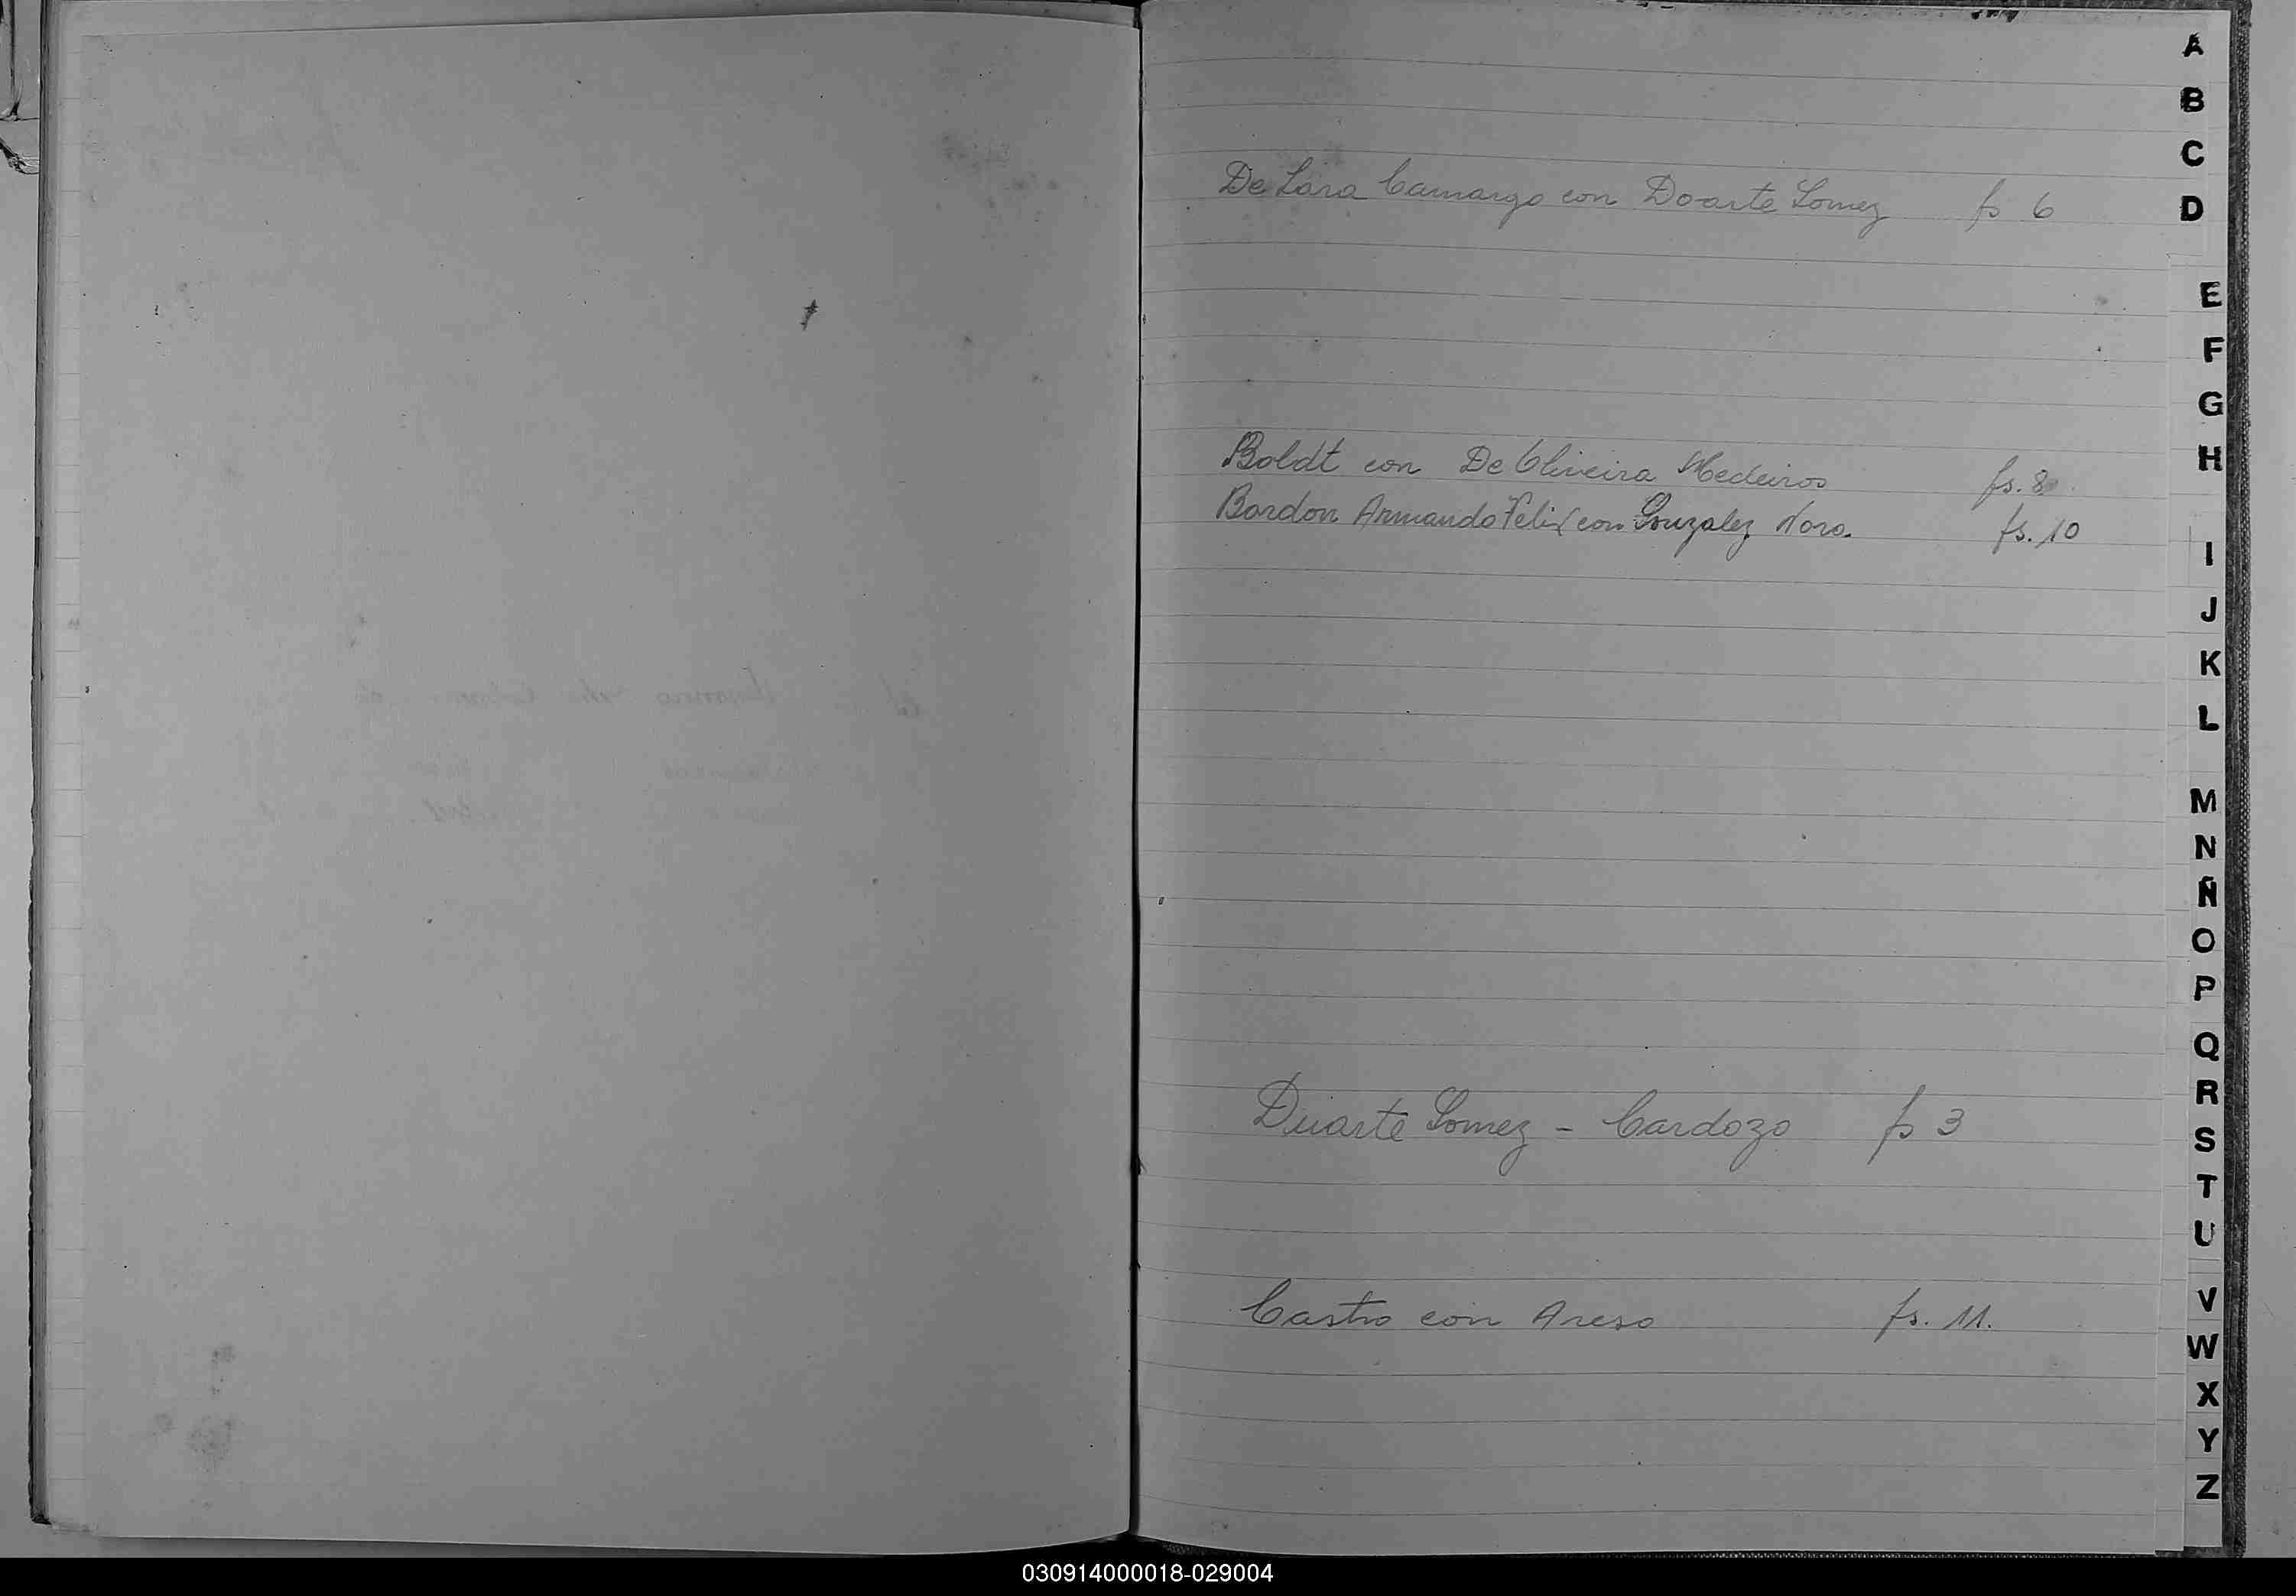 A
B
C
De Lara Camargo con Doarte Gomez fs 6
D
E
F
G
Boldt con De Oliveira Medeiros fs. 8
H
Bardon Armando Felix con Gonzalez Nora. fs. 10
I
J
K
L
M
N
Ñ
O
P
Q
R
Duarte Gomez - Cardozo fs 3
S
T
U
V
Castro con Areso fs. 11.
W
X
Y
Z
030914000018-029004